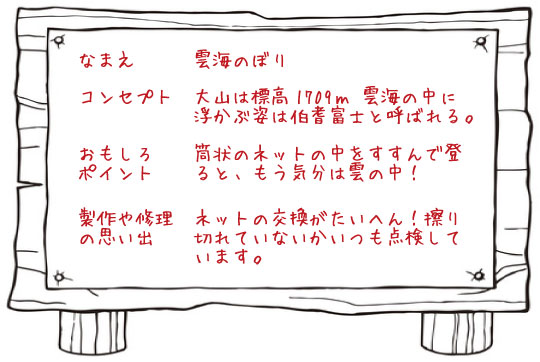 なまえ 雲海のぼり
コンセプト 大山は標高1709m 雲海の中に
浮かぶ姿は伯耆富士と呼ばれる。
おもしろ 筒状のネットの中をすすんで登
ポイント ると、もう気分は雲の中！
製作や修理 ネットの交換がたいへん！擦り
の思い出 切れていないかいつも点検して
います。